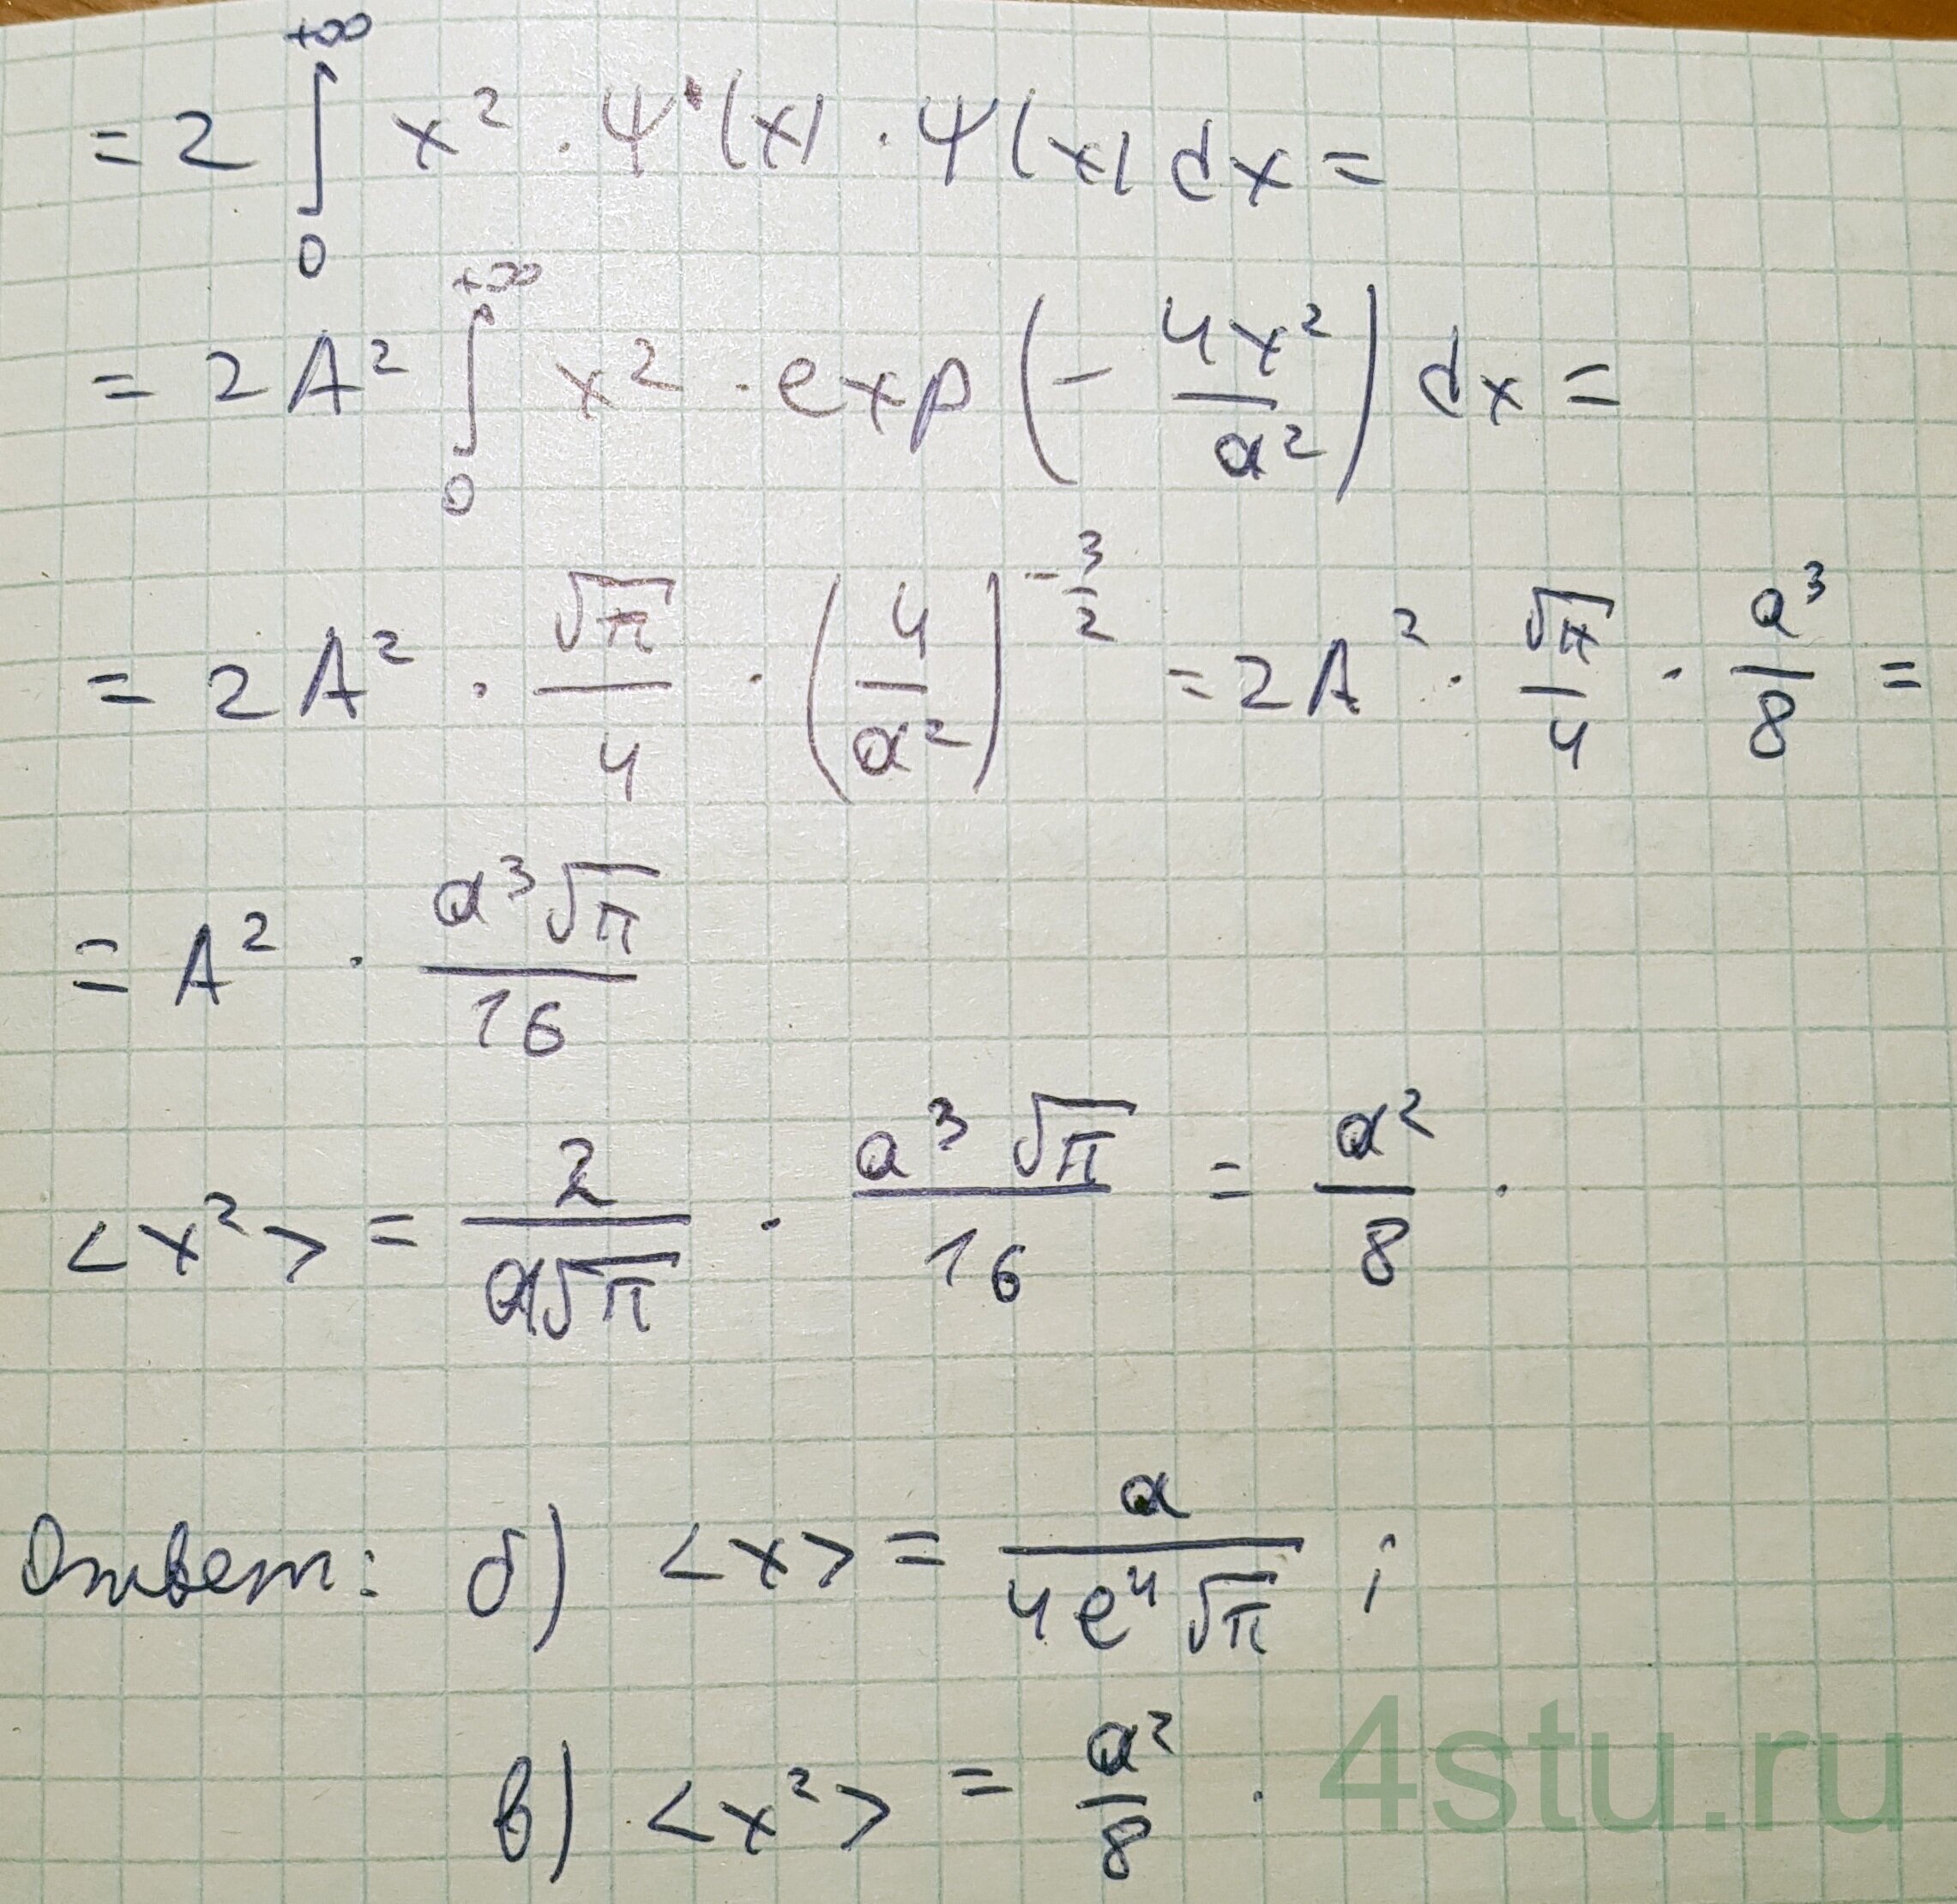 = 2 ∫₀^{+∞} x² · Ψ*(x) · Ψ(x) dx =
= 2A² ∫₀^{+∞} x² · exp(-4x²/a²) dx =
= 2A² · √π/4 · (4/a²)^{-3/2} = 2A² · √π/4 · a³/8 =
= A² · a³√π/16
<x²> = 2/(a√π) · a³√π/16 = a²/8 .
Ответ: б) <x> = a/(4e⁴√π) ;
в) <x²> = a²/8 .
4stu.ru